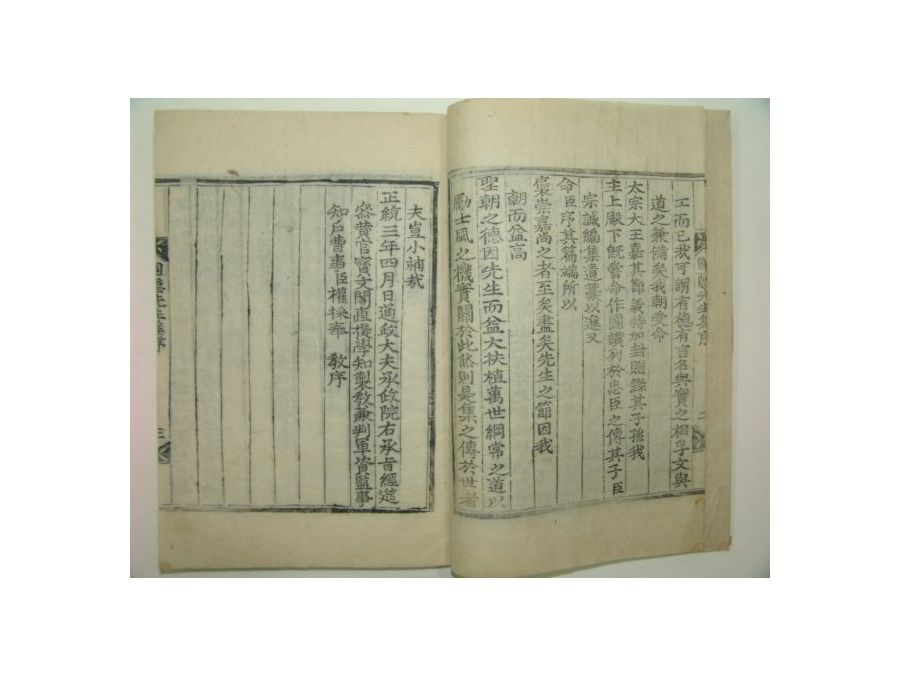 工而已哉可謂有德有言名與實之相孚文與
道之兼備矣我朝受命
太宗大王嘉其節義特加封贈錄其子孫我
主上殿下旣嘗命作圖讚列於忠臣之傳其子臣
宗誠編集遺藁以進又
命臣序其篇端所以
褒崇嘉尚之者至矣盡矣先生之節因我
朝而益高
聖朝之德因先生而益大扶植萬世綱常之道以
勵士風之機實關於此然則是集之傳於世者
夫豈小補哉
正統三年四月日通政大夫承政院右承旨經筵
參贊官寶文閣直提學知製敎兼判軍資監事
知戶曹事臣權採奉 敎序
圃隱先生集序 二
圃隱先生集序 三